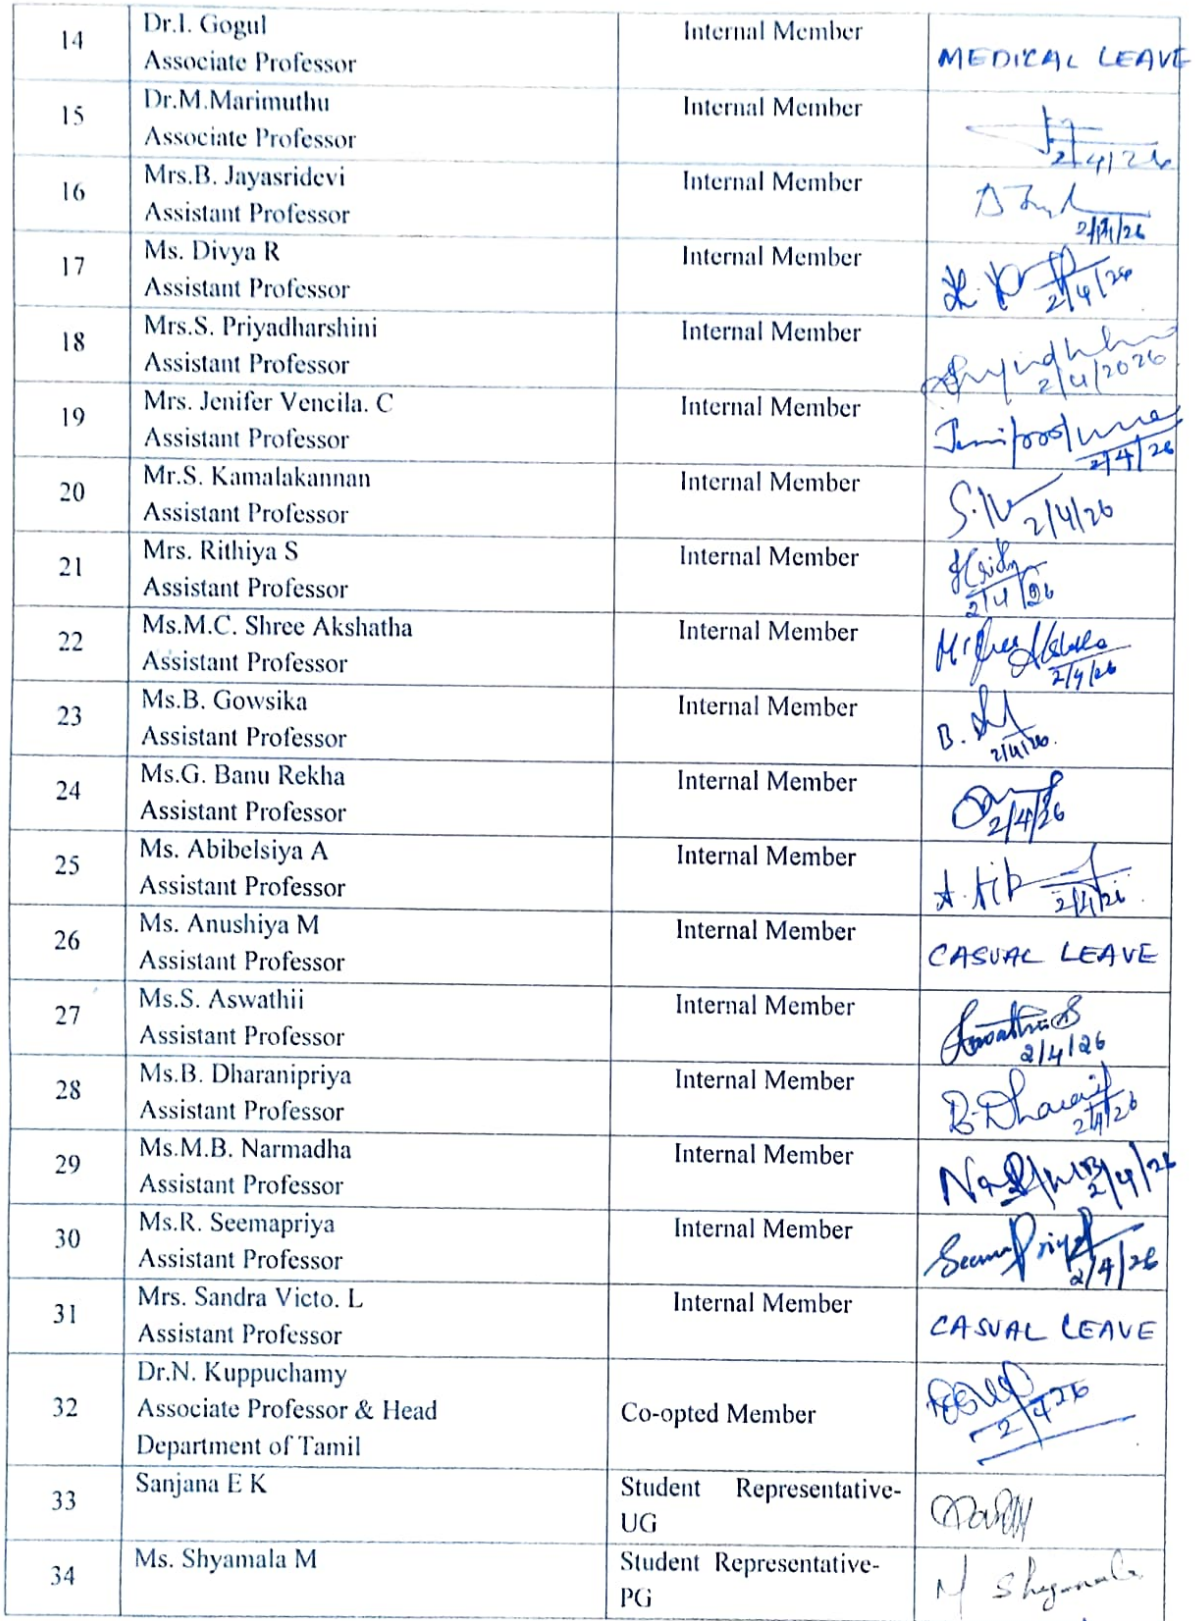 14
Dr.I. Gogul
Associate Professor
Internal Member
MEDICAL LEAVE
15
Dr.M.Marimuthu
Associate Professor
Internal Member
2/4/26
16
Mrs.B. Jayasridevi
Assistant Professor
Internal Member
2/4/26
17
Ms. Divya R
Assistant Professor
Internal Member
2/4/26
18
Mrs.S. Priyadharshini
Assistant Professor
Internal Member
2/4/2026
19
Mrs. Jenifer Vencila. C
Assistant Professor
Internal Member
2/4/26
20
Mr.S. Kamalakannan
Assistant Professor
Internal Member
2/4/26
21
Mrs. Rithiya S
Assistant Professor
Internal Member
2/4/26
22
Ms.M.C. Shree Akshatha
Assistant Professor
Internal Member
2/4/26
23
Ms.B. Gowsika
Assistant Professor
Internal Member
2/4/26.
24
Ms.G. Banu Rekha
Assistant Professor
Internal Member
2/4/26
25
Ms. Abibelsiya A
Assistant Professor
Internal Member
2/4/26
26
Ms. Anushiya M
Assistant Professor
Internal Member
CASUAL LEAVE
27
Ms.S. Aswathii
Assistant Professor
Internal Member
2/4/26
28
Ms.B. Dharanipriya
Assistant Professor
Internal Member
2/4/26
29
Ms.M.B. Narmadha
Assistant Professor
Internal Member
2/4/26
30
Ms.R. Seemapriya
Assistant Professor
Internal Member
2/4/26
31
Mrs. Sandra Victo. L
Assistant Professor
Internal Member
CASUAL LEAVE
32
Dr.N. Kuppuchamy
Associate Professor & Head
Department of Tamil
Co-opted Member
2/4/26
33
Sanjana E K
Student Representative-
UG
34
Ms. Shyamala M
Student Representative-
PG
M Shyamala